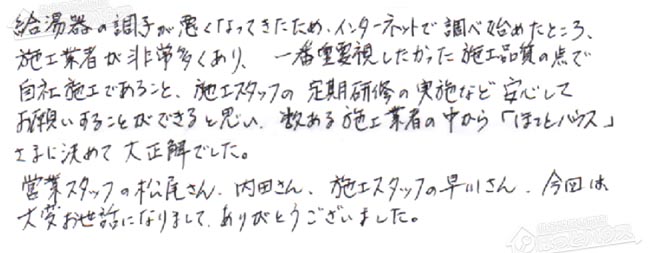 給湯器の調子が悪くなってきたため、インターネットで調べ始めたところ、
施工業者が非常多くあり、一番重要視したかった施工品質の点で
自社施工であること、施工スタッフの定期研修の実施など安心して
お願いすることができると思い、数ある施工業者の中から「ほっとハウス」
さまに決めて大正解でした。
営業スタッフの松尾さん、内田さん、施工スタッフの早川さん、今回は
大変お世話になりまして、ありがとうございました。
ほっとハウス